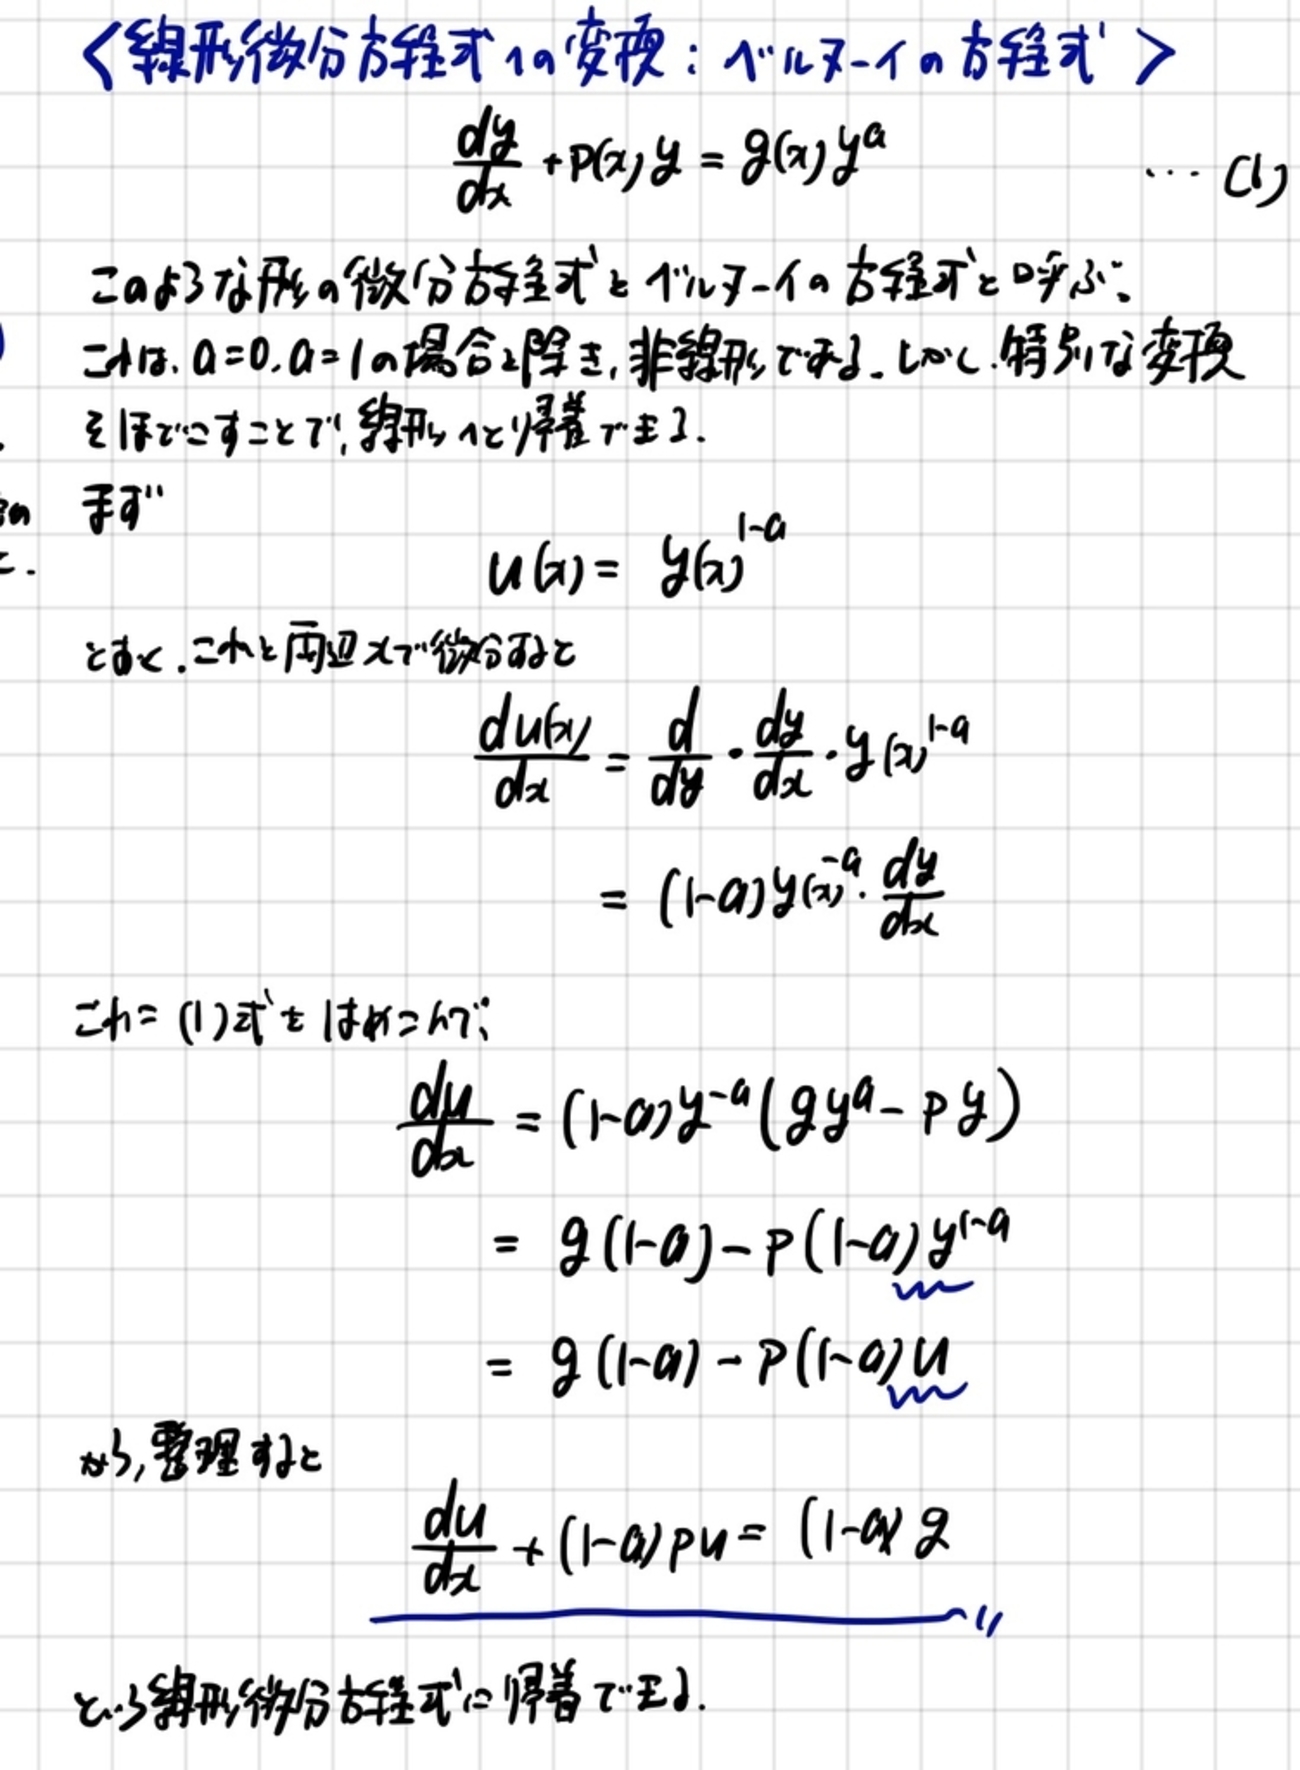 <線形微分方程式への変換：ベルヌーイの方程式>
dy/dx + p(x)y = g(x)y^a … (1)
このような形の微分方程式をベルヌーイの方程式と呼ぶ。
これは、a=0, a=1の場合を除き、非線形である。しかし、特別な変換
をほどこすことで、線形へと帰着できる.
まず
u(x) = y(x)^{1-a}
とおく.これを両辺xで微分すると
du(x)/dx = d/dy・dy/dx・y(x)^{1-a}
= (1-a)y(x)^{-a}・dy/dx
これに(1)式をはめこんで,
du/dx = (1-a)y^{-a}(gy^a - py)
= g(1-a) - p(1-a)y^{1-a}
= g(1-a) - p(1-a)u
から,整理すると
du/dx + (1-a)pu = (1-a)g
という線形微分方程式に帰着できる.